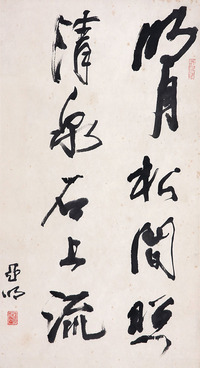 明月松間照
清泉石上流
亞明